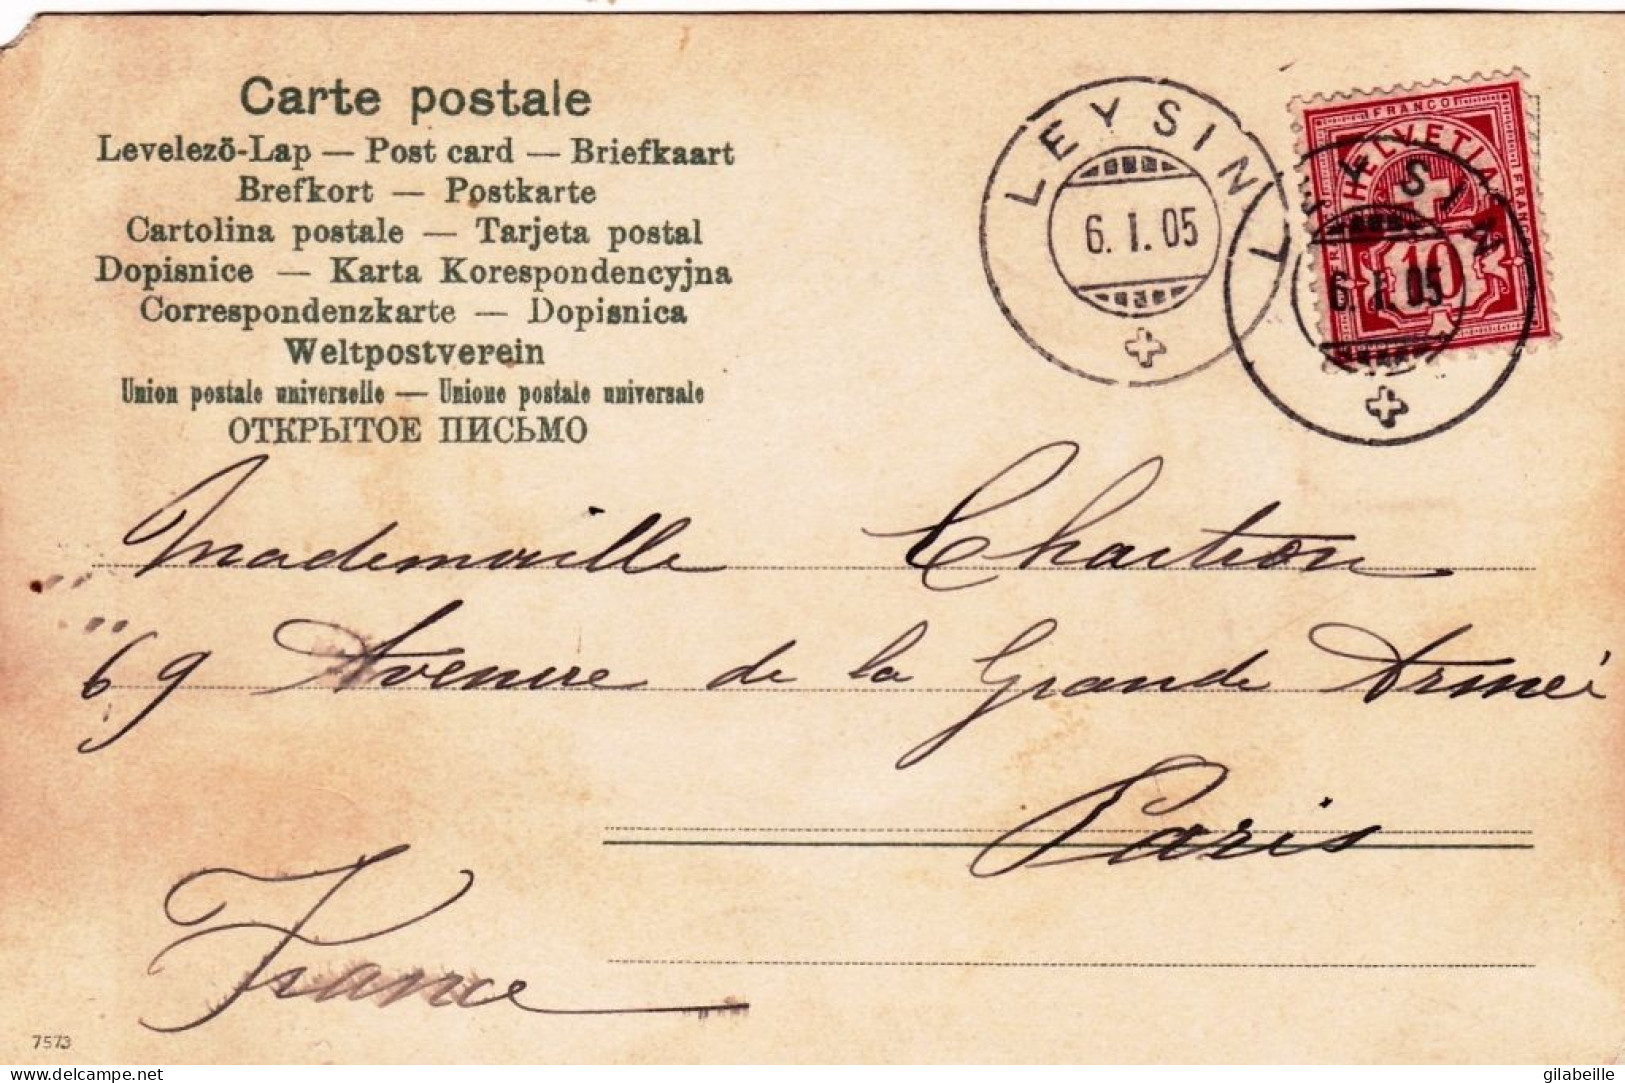 Carte postale
Levelezö-Lap — Post card — Briefkaart
Brefkort — Postkarte
Cartolina postale — Tarjeta postal
Dopisnice — Karta Korespondencyjna
Correspondenzkarte — Dopisnica
Weltpostverein
Union postale universelle — Unione postale universale
ОТКРЫТОЕ ПИСЬМО
LEYSIN
6. I. 05
FRANCO
HELVETIA
FRANCO
10
LEYSIN
6. I. 05
Mademoiselle Chartion
69 Avenue de la Grande Armeé
Paris
France
7573
delcampe.net
gilabeille